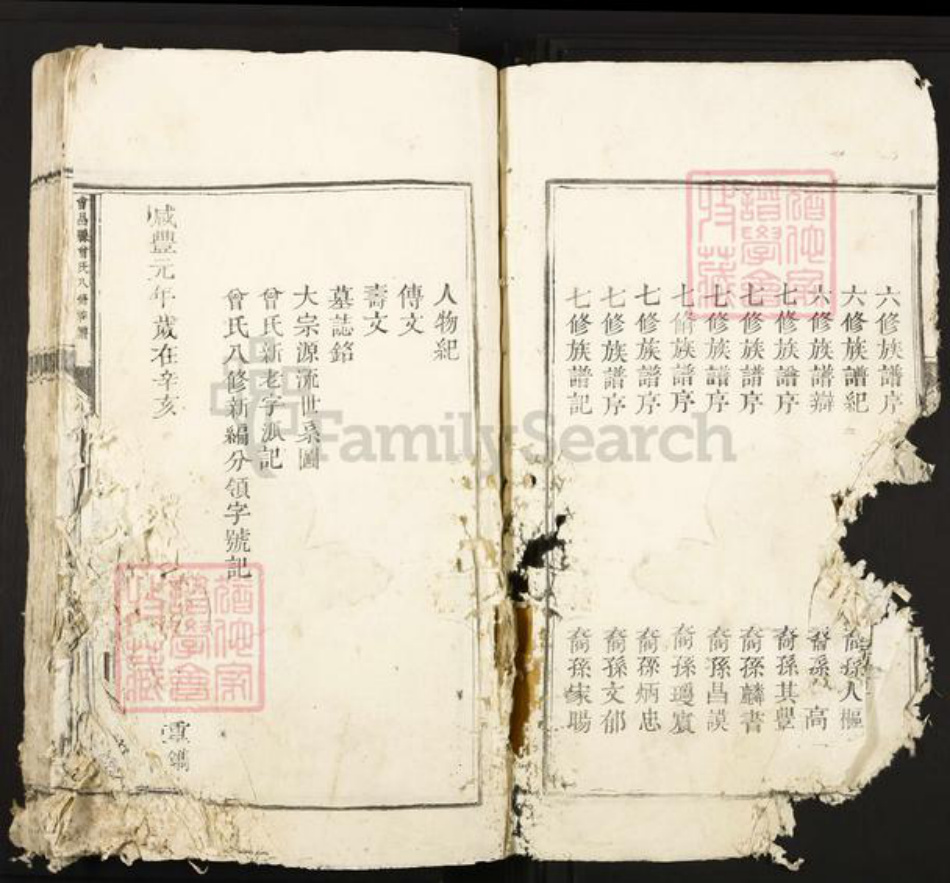 六修族譜序
六修族譜紀 裔孫人樞
六修族譜辯 裔孫 高
七修族譜序 裔孫其豐
七修族譜序 裔孫麟書
七修族譜序 裔孫昌謨
七修族譜序 裔孫
七修族譜序 裔孫炳忠
七修族譜序 裔孫文郁
七修族譜記 裔孫家暘
人物紀
傳文
壽文
墓誌銘
大宗源流世系圖
曾氏新老字派記
曾氏八修新編分領字號記
咸豐元年歲在辛亥 重鐫
會昌縣曾氏八修
譜學會
收藏
譜學會
收藏
FamilySearch